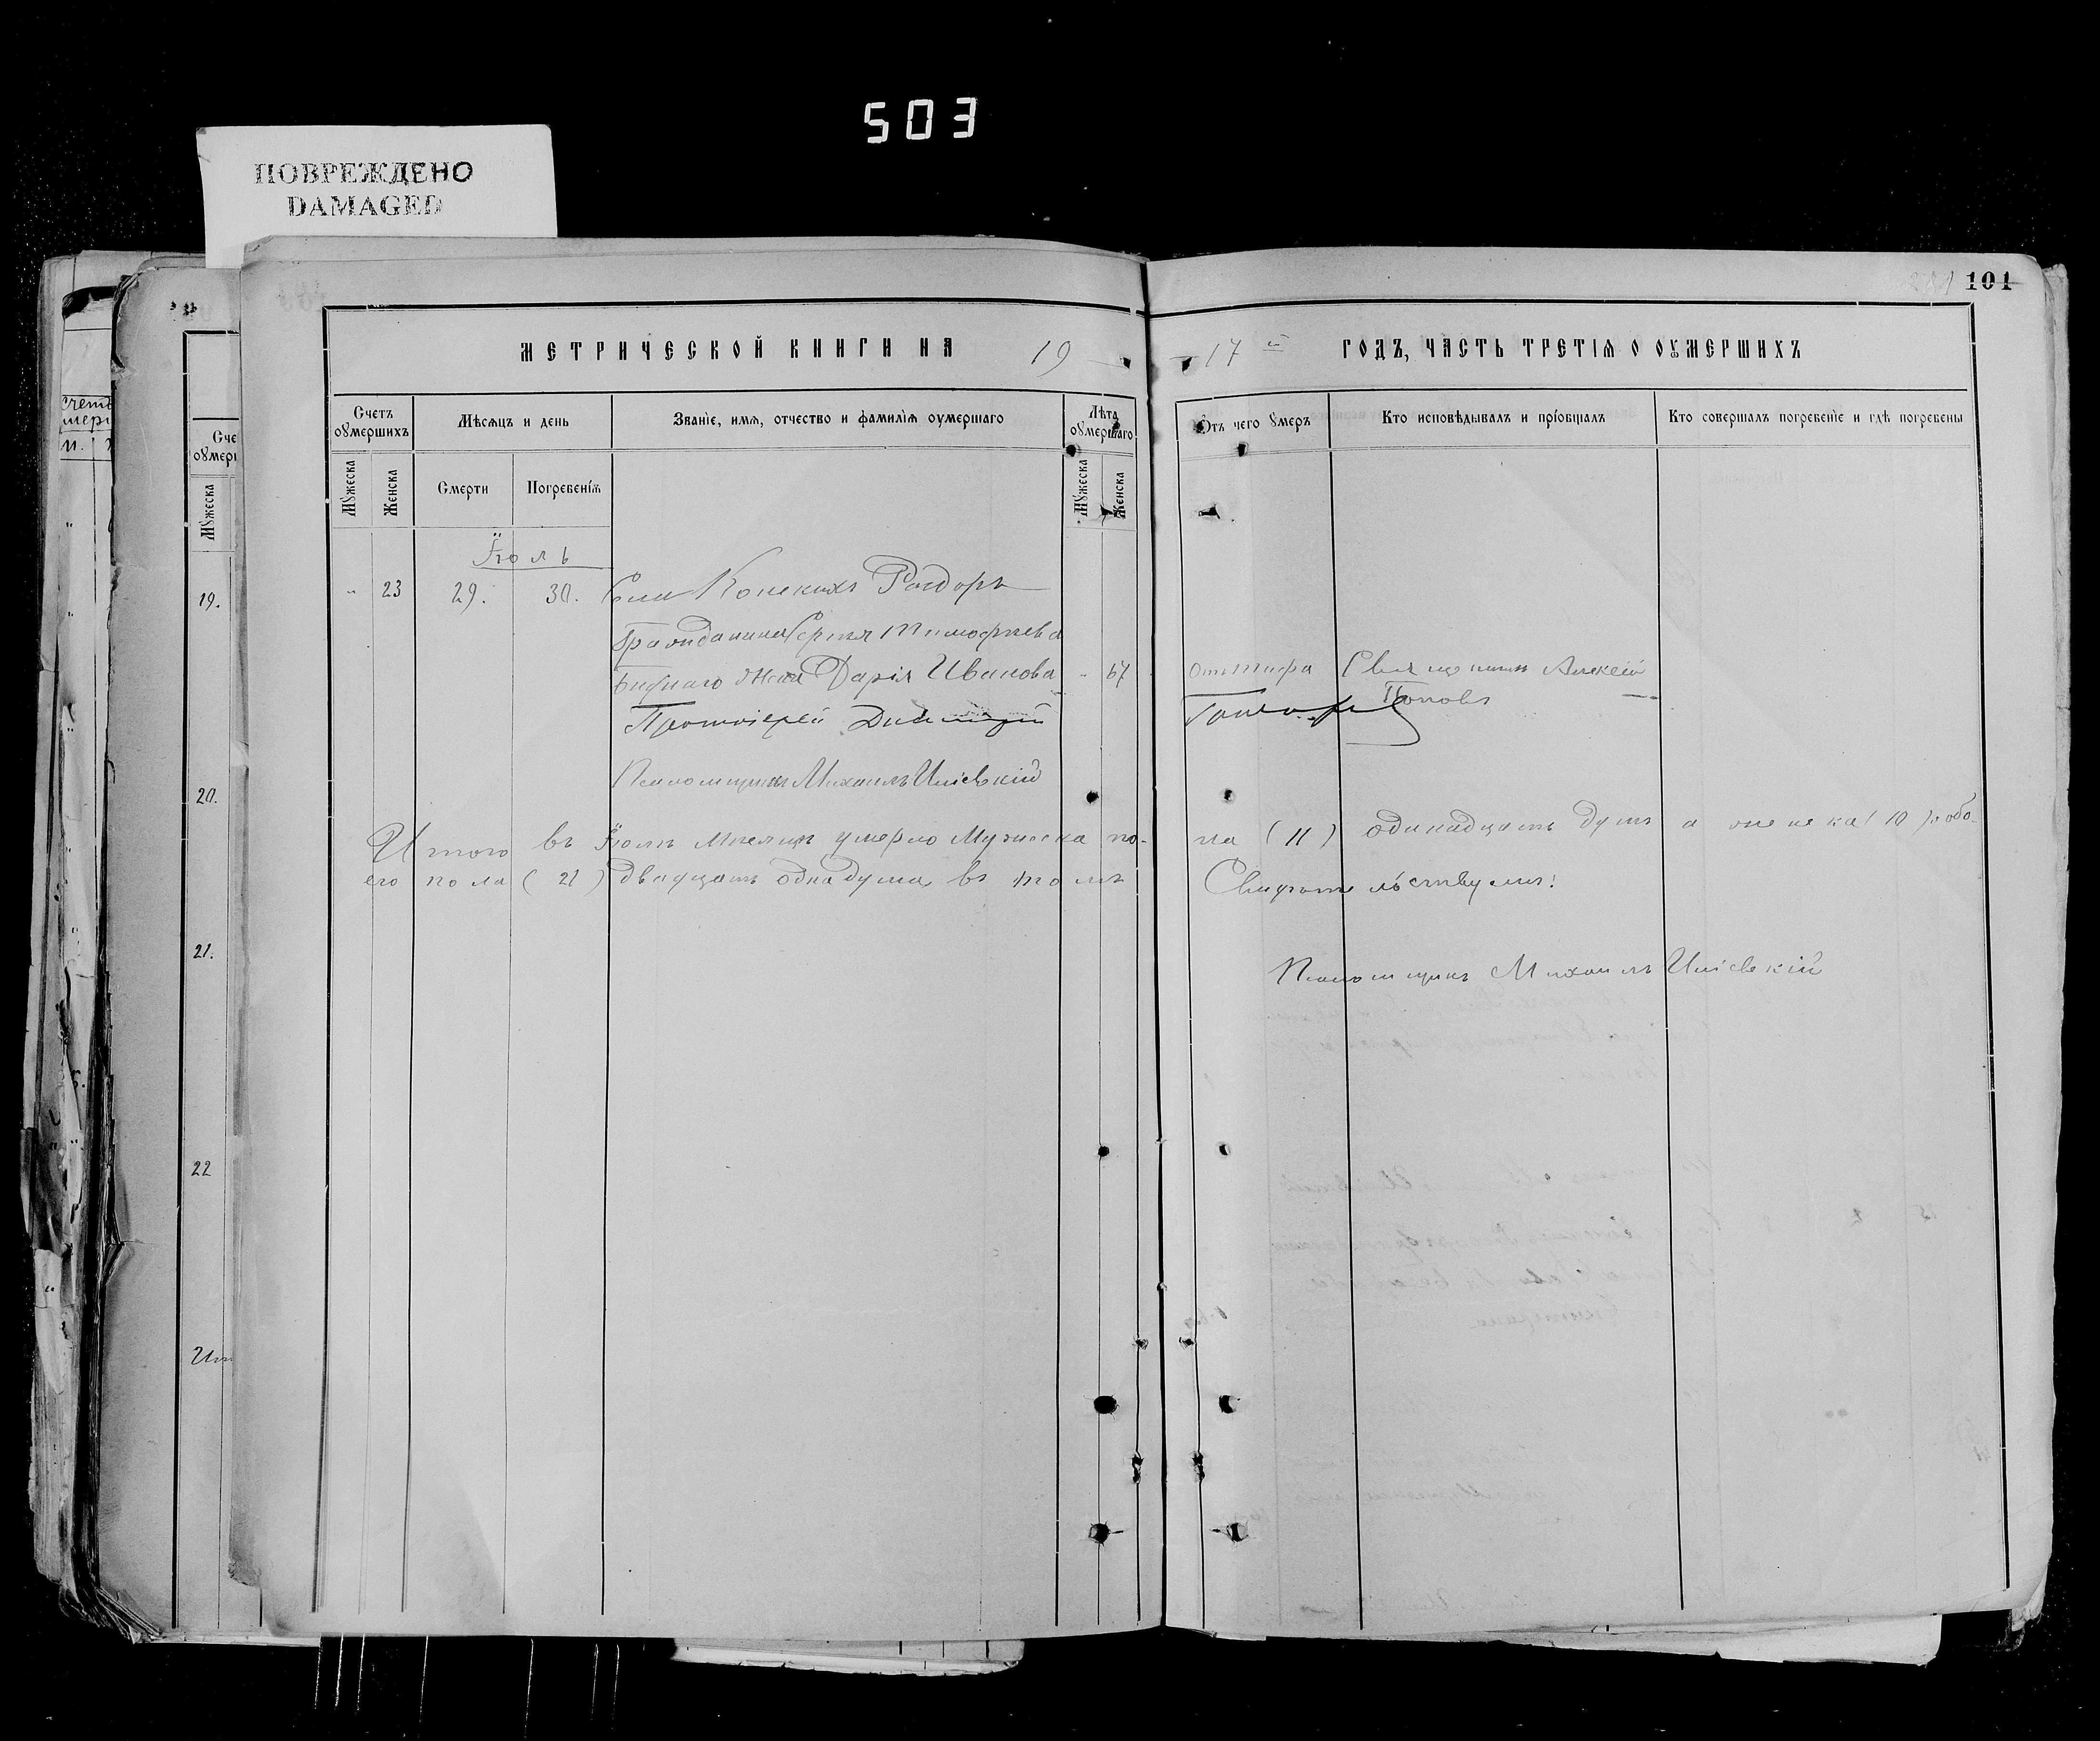 503
ПОВРЕЖДЕНО
DAMAGED
101
МЕТРИЧЕСКОЙ КНИГИ НА 19
17й ГОДЪ, ЧАСТЬ ТРЕТІЯ О ОУМЕРШИХЪ
Счетъ оумершихъ
Мѣсяцъ и день
Званіе, имя, отчество и фамилія оумершаго
Лѣта оумершаго
Отъ чего умеръ
Кто исповѣдывалъ и пріобщалъ
Кто совершалъ погребеніе и гдѣ погребены
Мужеска
Женска
Смерти
Погребенія
Мужеска
Женска
Іюль
23 29. 30. Села Конскихъ Раздоръ
гражданина Сергія Тимофеева
жена Дарія Иванова 67 отъ тифа Священникъ Алексій
Поповъ
Протоіерей Димитрій
Псаломщикъ Михаилъ
Итого въ Іюлѣ мѣсяцѣ умерло Мужеска по-
ла (11) одинадцать душъ а женска (10) обо-
его пола (21) двадцать одна душа, въ томъ
Свидѣтельствуемъ:
Псаломщикъ Михаилъ
19.
20.
21.
22